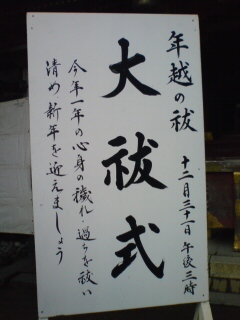 年越の祓
十二月三十一日 午後三時
大祓式
今年一年の心身の穢れ・過ちを祓い
清め、新年を迎えましょう